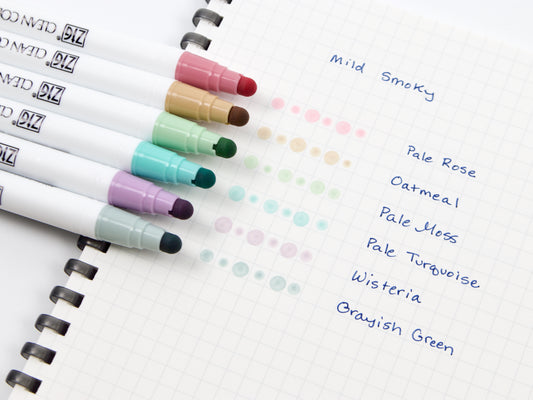 Mild Smoky
Pale Rose
Oatmeal
Pale Moss
Pale Turquoise
Wisteria
Grayish Green
ZIG CLEAN CO
ZIG CLEAN
ZIG CLEAN
ZIG CLEAN
ZIG